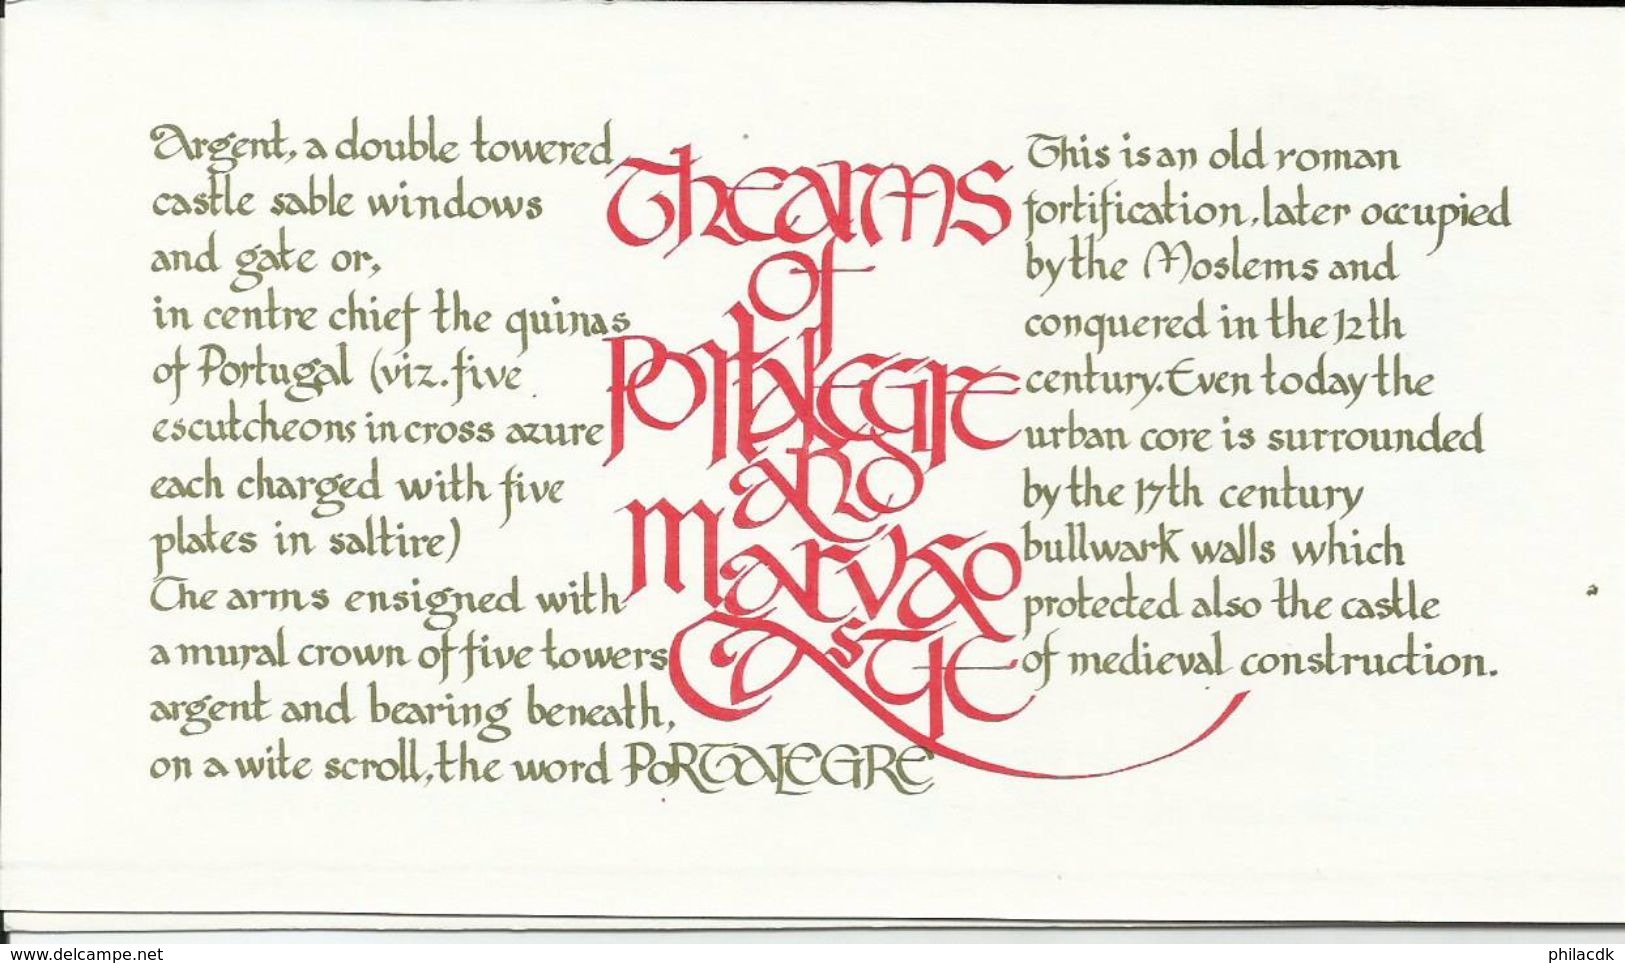 Argent, a double towered
castle sable windows
and gate or,
in centre chief the quinas
of Portugal (viz. five
escutcheons in cross azure
each charged with five
plates in saltire)
The arms ensigned with
a mural crown of five towers
argent and bearing beneath,
on a wite scroll, the word PORTALEGRE
The arms
of
Portalegre
and
Marvao
Castle
This is an old roman
fortification, later occupied
by the Moslems and
conquered in the 12th
century. Even today the
urban core is surrounded
by the 17th century
bullwark walls which
protected also the castle
of medieval construction.
www.delcampe.net
philacdk